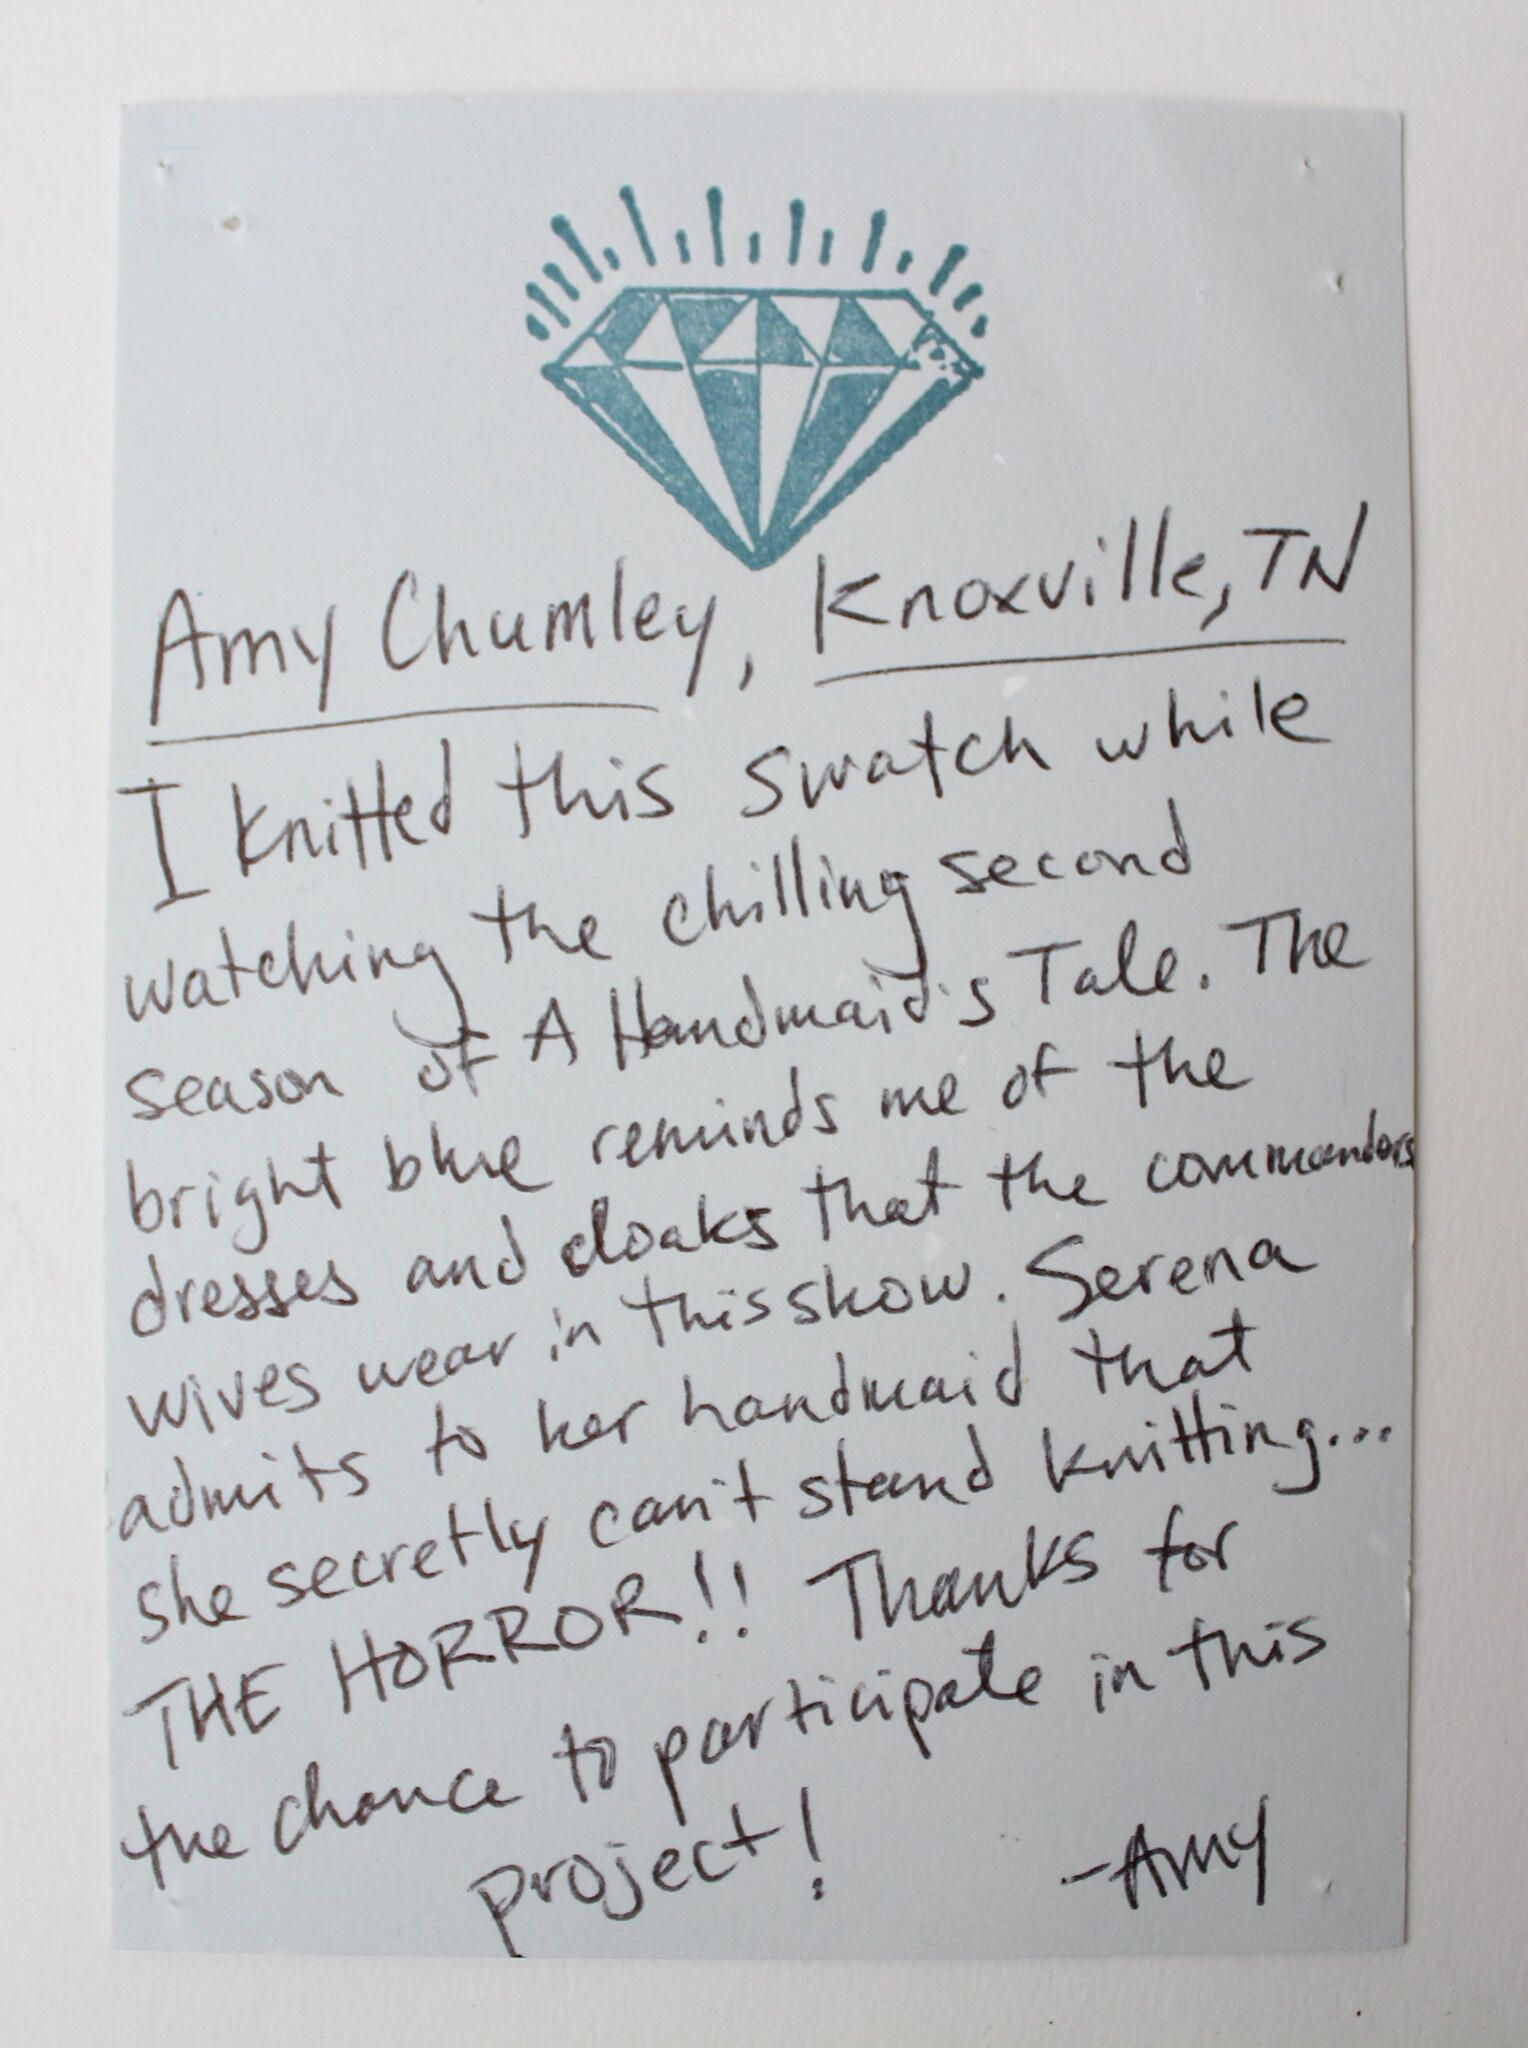 Amy Chumley, Knoxville, TN
I knitted this swatch while
watching the chilling second
season of A Handmaid's Tale. The
bright blue reminds me of the
dresses and cloaks that the commandors
wives wear in this show. Serena
admits to her handmaid that
she secretly can't stand knitting...
THE HORROR!! Thanks for
the chance to participate in this
project!
-Amy